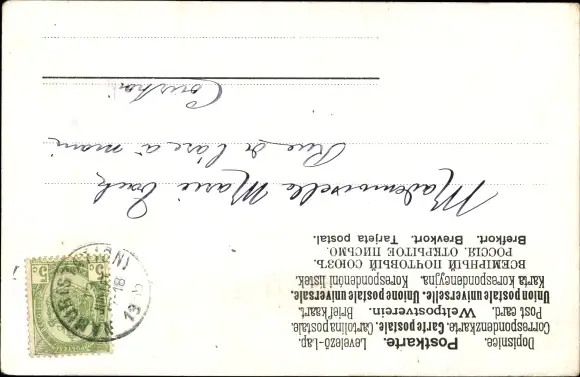 Dopisnice. Postkarte. Levelező-Lap.
Correspondenzkarte. Carte postale. Cartolina postale.
Post card. Weltpostverein. Brief kaart.
Union postale universelle. Unione postale universale.
Karta korespondencyjna. Korespondenčni listek.
ВСЕМІРНЫЙ ПОЧТОВЫЙ СОЮЗЪ.
РОССІЯ. ОТКРЫТОЕ ПИСЬМО.
Brefkort. Brevkort. Tarjeta postal.
Mademoiselle Marie
Rue de l'arc à main
Courtrai
NAMUR (STATION)